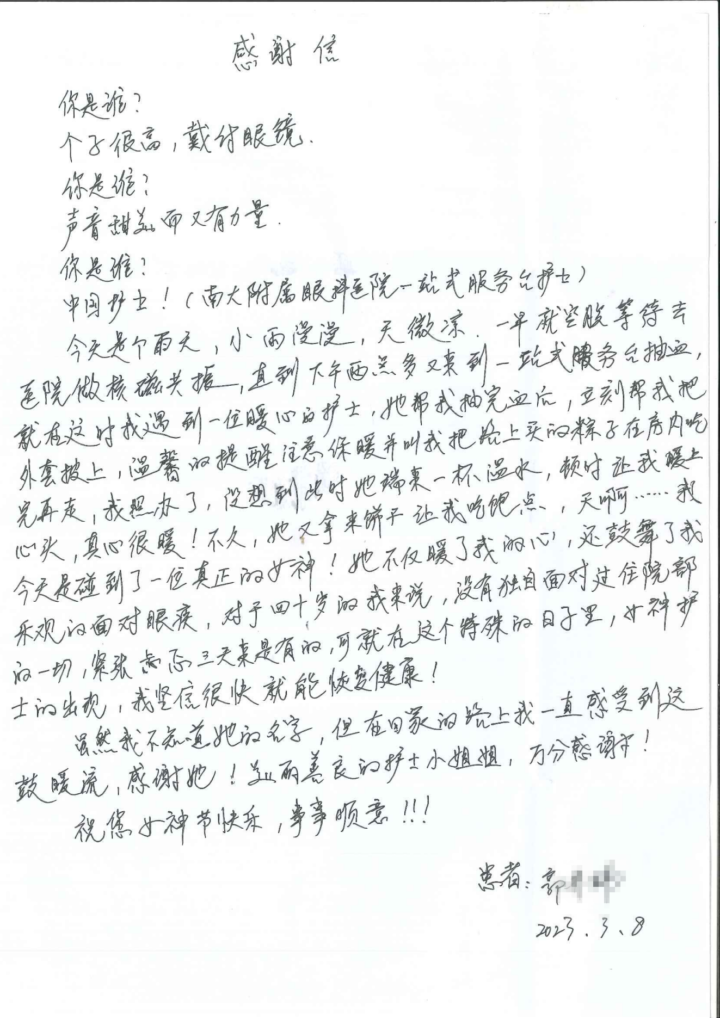 感谢信
你是谁?
个子很高,戴付眼镜.
你是谁?
声音甜美而又有力量.
你是谁?
中国护士!(南大附属眼科医院一站式服务台护士)
今天是个雨天,小雨漫漫,天微凉.一早就空腹等待去
医院做核磁共振,直到下午两点多又来到一站式服务台抽血,
就在这时我遇到一位暖心的护士,她帮我抽完血后,立刻帮我把
外套披上,温馨的提醒注意保暖并叫我把路上买的粽子在房内吃
完再走,我照办了,没想到此时她端来一杯温水,顿时让我暖上
心头,真心很暖!不久,她又拿来饼干让我吃饱点,天啊……我
今天是碰到了一位真正的女神!她不仅暖了我的心,还鼓舞了我
乐观的面对眼疾,对于四十岁的我来说,没有独自面对过住院部
的一切,紧张 三天来是有的,可就在这个特殊的日子里,女神护
士的出现,我坚信很快就能恢复健康!
虽然我不知道她的名字,但在回家的路上我一直感受到这
鼓暖流,感谢她!美丽善良的护士小姐姐,万分感谢!
祝您女神节快乐,事事顺意!!!
患者:郭
2023.3.8